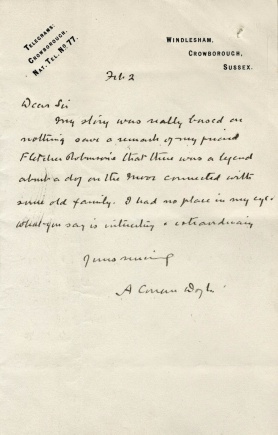 TELEGRAMS:
CROWBOROUGH.
NAT. TEL. NO. 77.
WINDLESHAM,
CROWBOROUGH,
SUSSEX.
Feb 2
Dear Sir
My story was really based on
nothing save a remark of my friend
Fletcher Robinson's that there was a legend
about a dog on the Moor connected with
some old family. I had no place in my eye.
What you say is interesting & extraordinary
Yours sincerely
A Conan Doyle